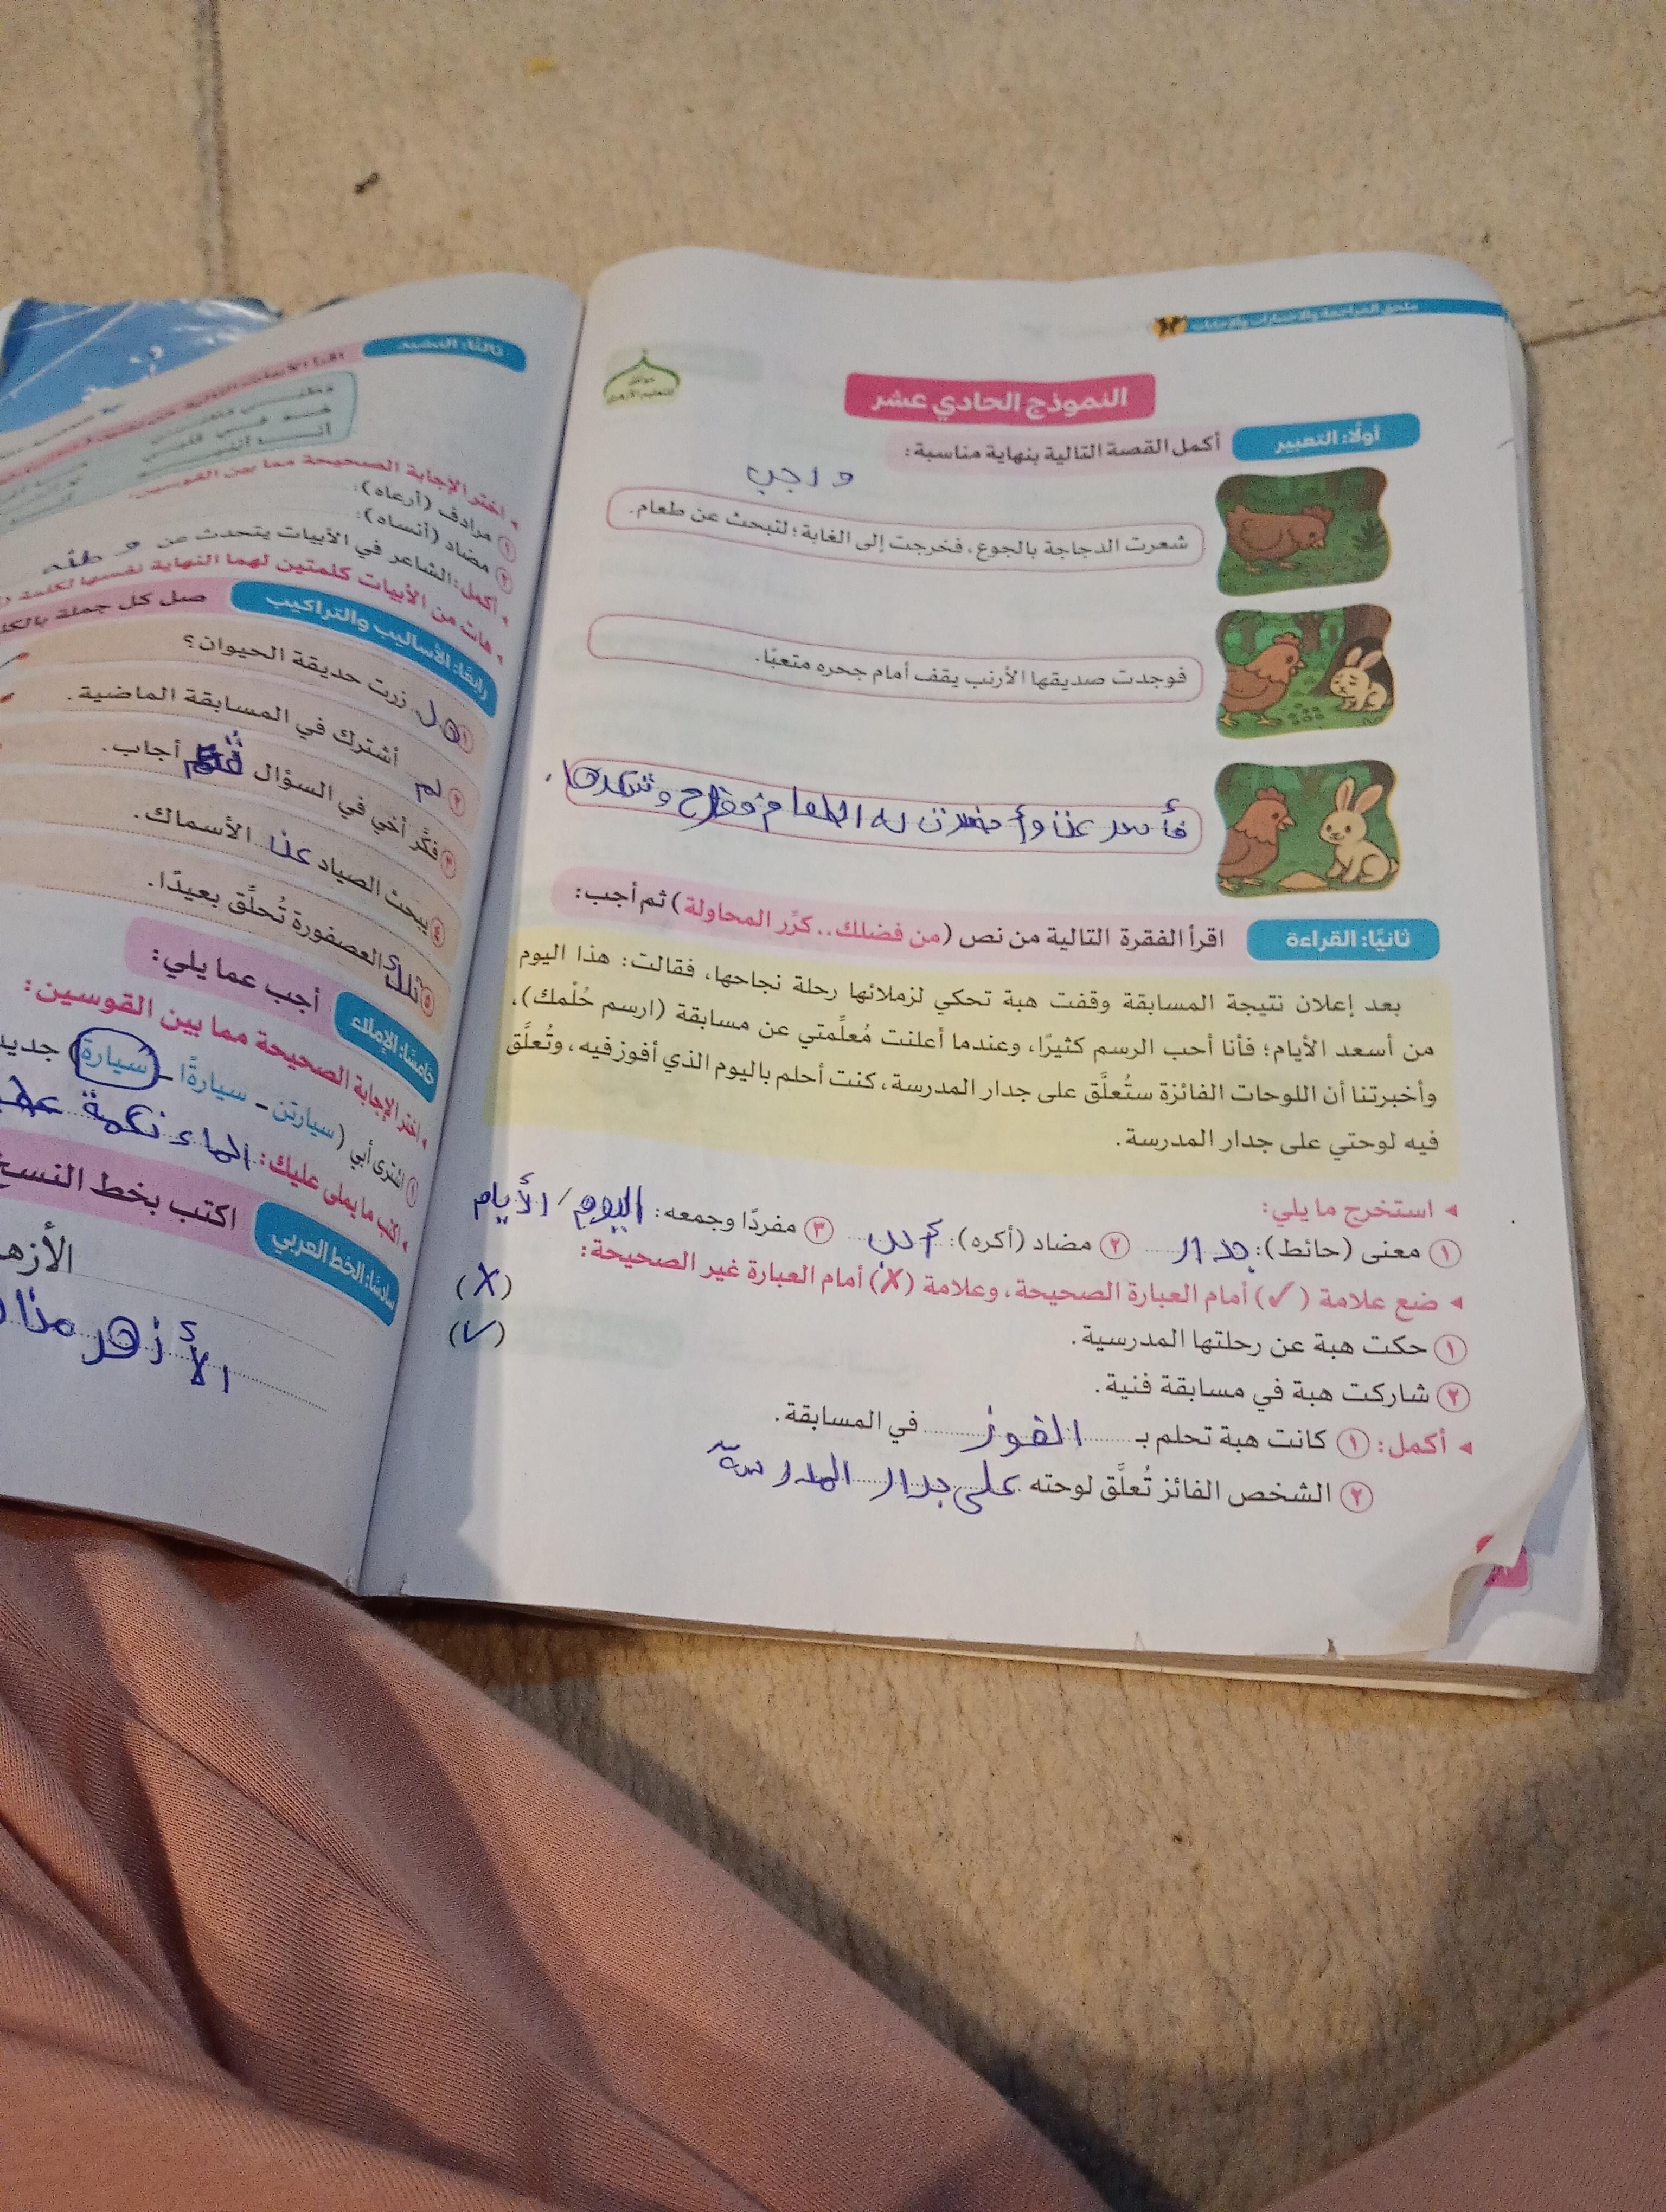 ملحق المراجعة والاختبارات والإجابات
النموذج الحادي عشر
أولًا: التعبير
أكمل القصة التالية بنهاية مناسبة:
واجب
شعرت الدجاجة بالجوع، فخرجت إلى الغابة؛ لتبحث عن طعام.
فوجدت صديقها الأرنب يقف أمام جحره متعبًا.
له الطعام ففرح وشكرها.
ثانيًا: القراءة
اقرأ الفقرة التالية من نص (من فضلك.. كرِّر المحاولة) ثم أجب:
بعد إعلان نتيجة المسابقة وقفت هبة تحكي لزملائها رحلة نجاحها، فقالت: هذا اليوم
من أسعد الأيام؛ فأنا أحب الرسم كثيرًا، وعندما أعلنت مُعلِّمتي عن مسابقة (ارسم حُلْمك)،
وأخبرتنا أن اللوحات الفائزة ستُعلَّق على جدار المدرسة، كنت أحلم باليوم الذي أفوز فيه، وتُعلَّق
فيه لوحتي على جدار المدرسة.
استخرج ما يلي:
١ معنى (حائط): جدار ٢ مضاد (أكره): ٣ مفردًا وجمعه: اليوم / الأيام
ضع علامة (✓) أمام العبارة الصحيحة، وعلامة (✗) أمام العبارة غير الصحيحة:
١ حكت هبة عن رحلتها المدرسية. (✗)
٢ شاركت هبة في مسابقة فنية. (✓)
أكمل: ١ كانت هبة تحلم بـ الفوز في المسابقة.
٢ الشخص الفائز تُعلَّق لوحته على جدار المدرسة
ثالثًا: النشيد
اختر الإجابة الصحيحة مما بين القوسين:
١ مرادف (أرعاه):
٢ مضاد (أنساه):
أكمل: الشاعر في الأبيات يتحدث عن وطنه
هات من الأبيات كلمتين لهما النهاية نفسها لكلمة
رابعًا: الأساليب والتراكيب
صل كل جملة بالكل
١ هل زرت حديقة الحيوان؟
٢ لم أشترك في المسابقة الماضية.
٣ فكَّر أخي في السؤال ثم أجاب.
٤ يبحث الصياد عن الأسماك.
٥ تلك العصفورة تُحلِّق بعيدًا.
خامسًا: الإملاء
أجب عما يلي:
اختر الإجابة الصحيحة مما بين القوسين:
١ اشترى أبي (سيارتن – سيارةًا – سيارة) جديد
اكتب ما يملى عليك: الماء نعمة
سادسًا: الخط العربي
اكتب بخط النسخ
الأزهر
الأزهر